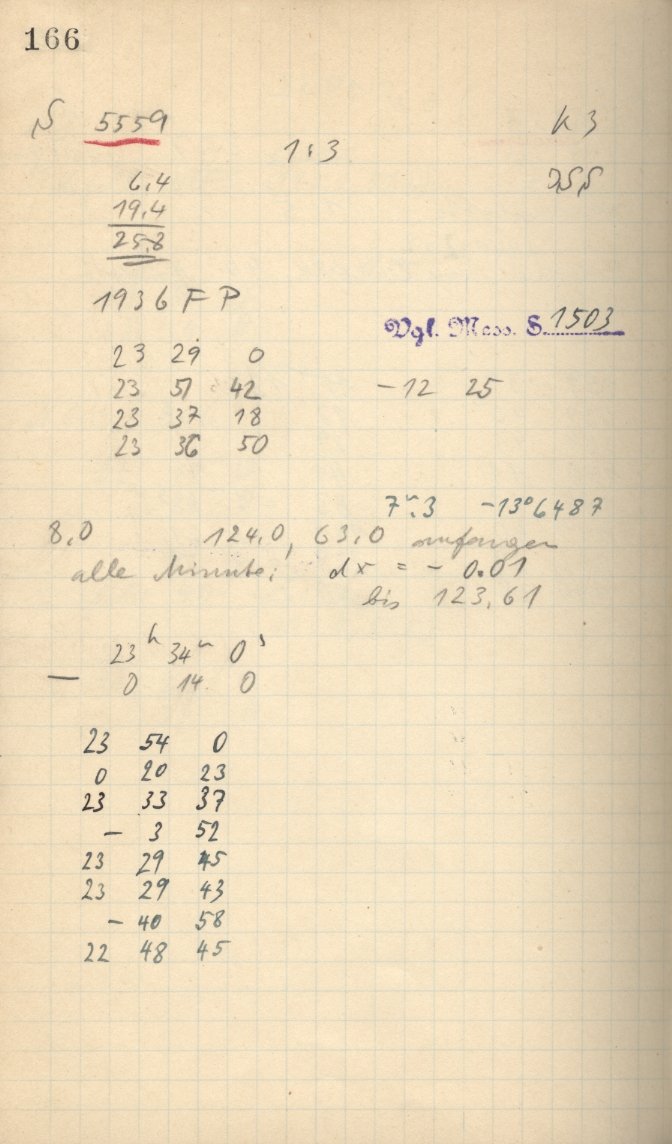 166
S 5559 K 3
1:3
6,4
19,4
25,8
1936 F P
Vgl. Mess. S. 1503
23 29 0
23 51 42 -12 25
23 37 18
23 36 50
7ᵐ.3 -13°6487
8,0 124,0, 63,0 anfangen
alle Minute: dx = - 0.01
bis 123,61
23ʰ 34ᵐ 0ˢ
— 0 14 0
23 54 0
0 20 23
23 33 37
- 3 52
23 29 45
23 29 43
- 40 58
22 48 45